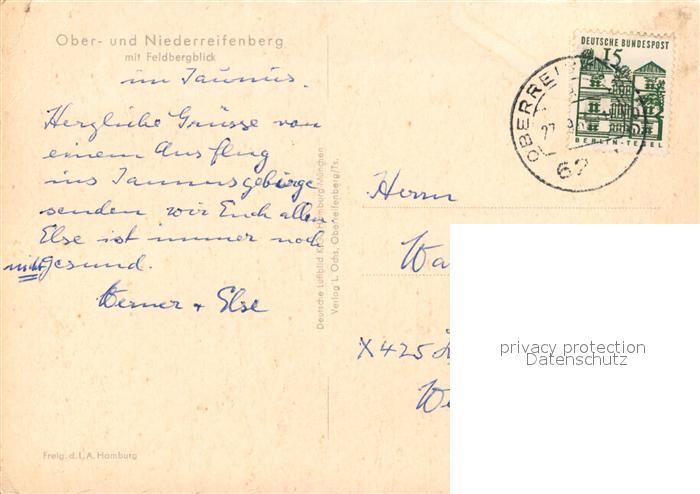 Ober- und Niederreifenberg
mit Feldbergblick
im Taunus.
Herzliche Grüsse von
einem Ausflug
ins Taunusgebirge
senden wir Euch allen.
Else ist immer noch
nicht gesund.
Werner + Else
Freig. d. L.A. Hamburg
Deutsche Luftbild Hamburg-München
Verlag L. Ochs, Oberreifenberg/Ts.
DEUTSCHE BUNDESPOST
15
BERLIN-TEGEL
27
62
Herrn
X425
privacy protection
Datenschutz